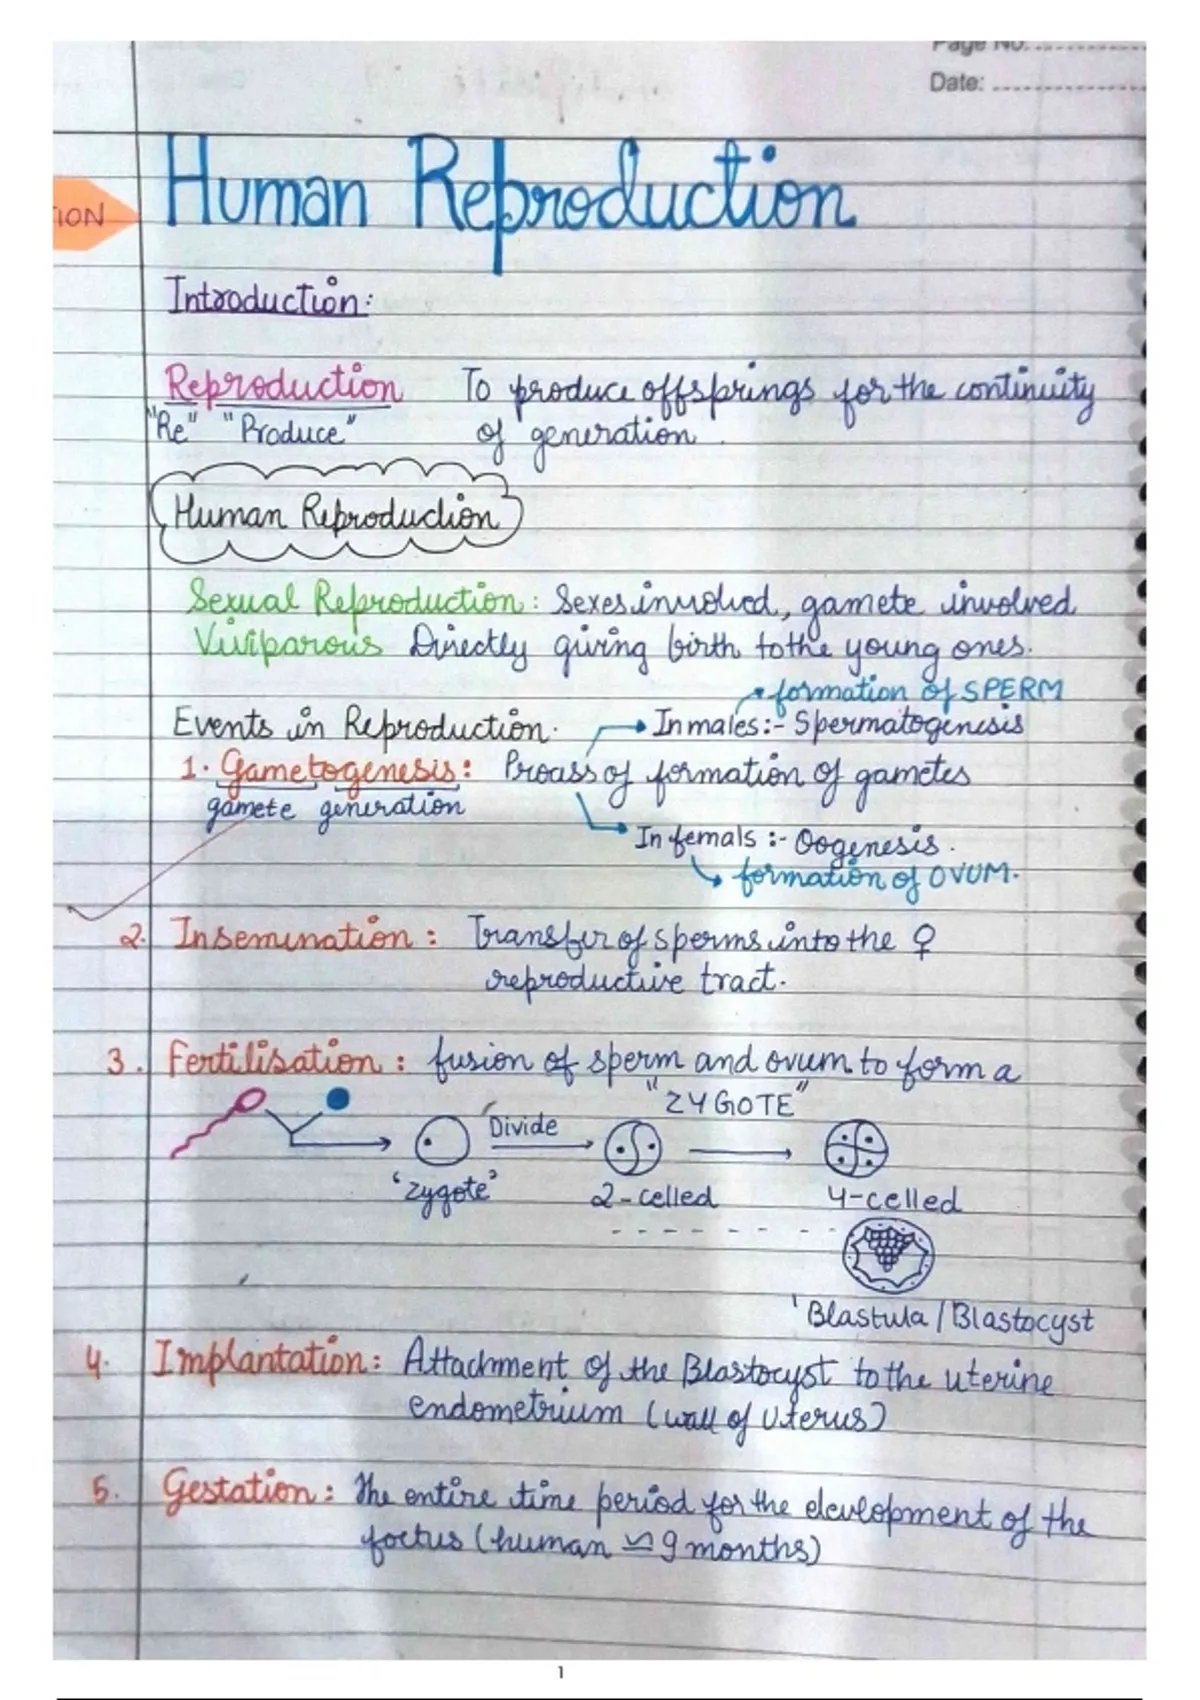 Page No.
Date:
ION
Human Reproduction
Introduction:
Reproduction To produce offsprings for the continuity
"Re" "Produce" of generation.
Human Reproduction
Sexual Reproduction: Sexes involved, gamete involved
Viviparous Directly giving birth to the young ones.
formation of SPERM
Events in Reproduction. In males:- Spermatogenesis
1. Gametogenesis: Process of formation of gametes
gamete generation
In femals :- Oogenesis.
formation of OVUM.
2. Insemination: Transfer of sperms into the ♀
reproductive tract.
3. Fertilisation: fusion of sperm and ovum to form a
"ZYGOTE"
Divide
'zygote' 2-celled 4-celled
'Blastula / Blastocyst
4. Implantation: Attachment of the Blastocyst to the uterine
endometrium (wall of uterus)
5. Gestation: The entire time period for the development of the
foetus (human ≃ 9 months)
1